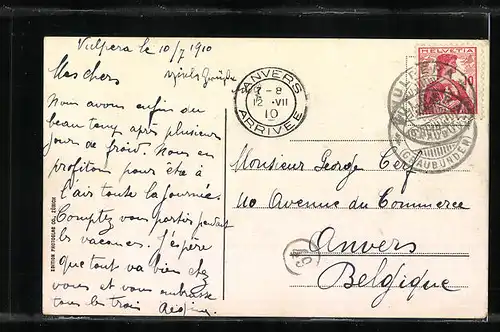 Vulpera le 10/7 1910
Mes chers
Nous avons enfin du
beau temp après plusieur
jours de froid. Nous en
profitons pour être à
l'air toute la journée.
Comptez vous partir pendant
les vacances. J'espère
que tout va bien chez
vous et vous embrasse
tous les trois
ANVERS
7-8
12 VII
10
ARRIVÉE
HELVETIA
10
(GRAUBÜNDEN)
Monsieur George Cerf
40 Avenue du Commerce
Anvers
Belgique
EDITION PHOTOGLOB CO., ZÜRICH